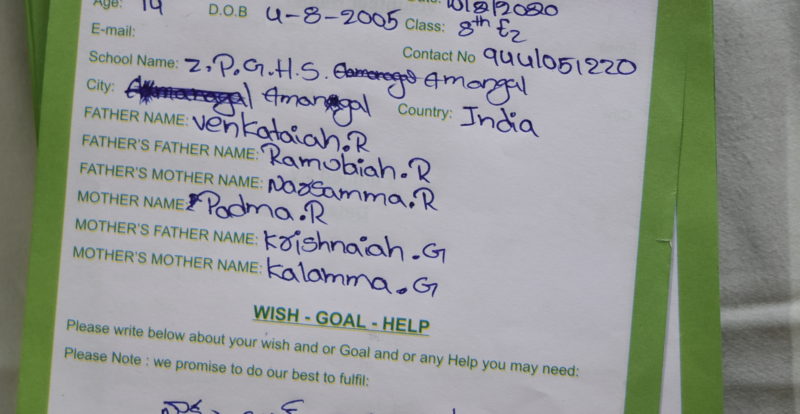 Age: 14 D.O.B 4-8-2005 Class: 8th E2
E-mail:
Contact No 9441051220
School Name: Z.P.G.H.S. Amangal
City: Amangal Country: India
FATHER NAME: Venkataiah.R
FATHER'S FATHER NAME: Ramubiah.R
FATHER'S MOTHER NAME: Narsamma.R
MOTHER NAME: Padma.R
MOTHER'S FATHER NAME: Krishnaiah.G
MOTHER'S MOTHER NAME: Kalamma.G
WISH - GOAL - HELP
Please write below about your wish and or Goal and or any Help you may need:
Please Note : we promise to do our best to fulfil: